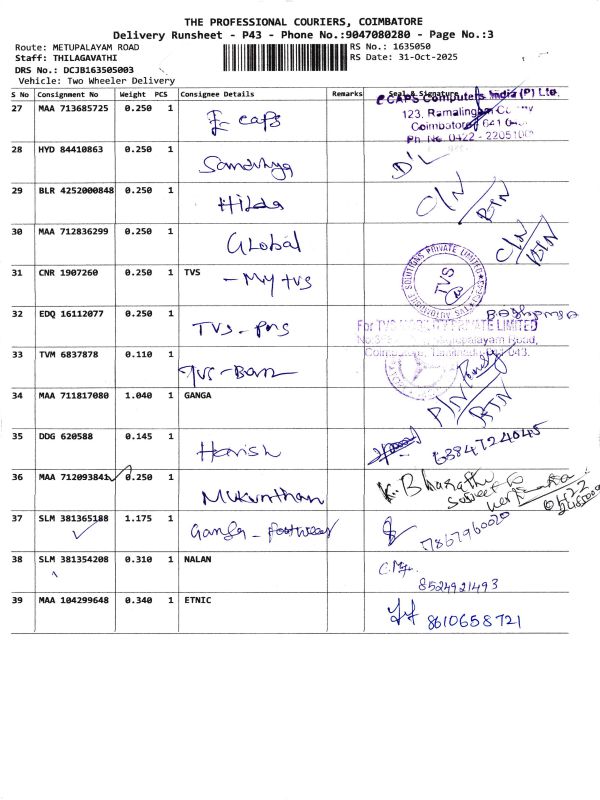 THE PROFESSIONAL COURIERS, COIMBATORE
Delivery Runsheet - P43 - Phone No.:9047080280 - Page No.:3
Route: METUPALAYAM ROAD RS No.: 1635050
Staff: THILAGAVATHI RS Date: 31-Oct-2025
DRS No.: DCJB163505003
Vehicle: Two Wheeler Delivery
S No Consignment No Weight PCS Consignee Details Remarks Seal & Signature
CAPS Computers India (P) Ltd.
27 MAA 713685725 0.250 1 E caps 123, Ramalingam
Coimbatore 641
Ph. No. 0422 -
28 HYD 84410863 0.250 1 Sandhya D'L
29 BLR 4252000848 0.250 1 Hilda C/N RTN
30 MAA 712836299 0.250 1 Global C/N RTN
31 CNR 1907260 0.250 1 TVS - My tvs SOLUTIONS PRIVATE LIMITED TVS
32 EDQ 16112077 0.250 1 TVS - pms
For TVS PRIVATE LIMITED
Road,
33 TVM 6837878 0.110 1 TVS - Ban Coimbatore, 043.
34 MAA 711817080 1.040 1 GANGA P/N RTN
35 DDG 620588 0.145 1 Harish 6384724045
36 MAA 712093841 0.250 1 Mukunthan K. Bharathi
37 SLM 381365188 1.175 1 Ganga - footwear 7867960020
38 SLM 381354208 0.310 1 NALAN 8524921493
39 MAA 104299648 0.340 1 ETNIC 8610658721